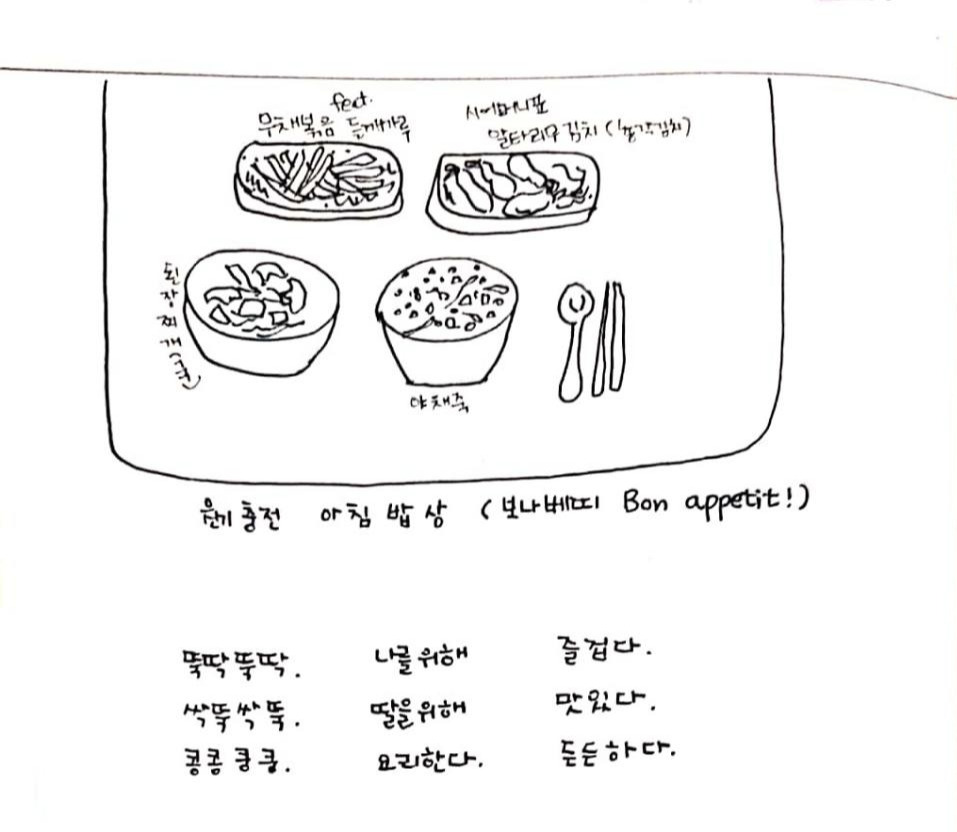 feat.
무채볶음 들깨가루
시어머니표
알타리무김치 (총각김치)
된장찌개(국)
야채죽
원기충전 아침 밥상 (보나베띠 Bon appetit!)
뚝딱뚝딱. 나를위해 즐겁다.
싹뚝싹뚝. 딸을위해 맛있다.
콩콩쿵쿵. 요리한다. 든든하다.